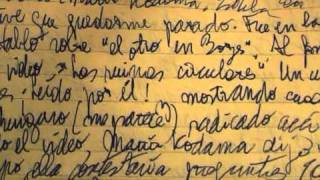 que quedarme parado. Fue en la
sobre "el otro en Borges". Al fon
video, "Las ruinas circulares". Un cu
leído por él! mostrando cua
húngaro (me parece) radicado acá
el video María Kodama dijo
po ella contestaría preguntas